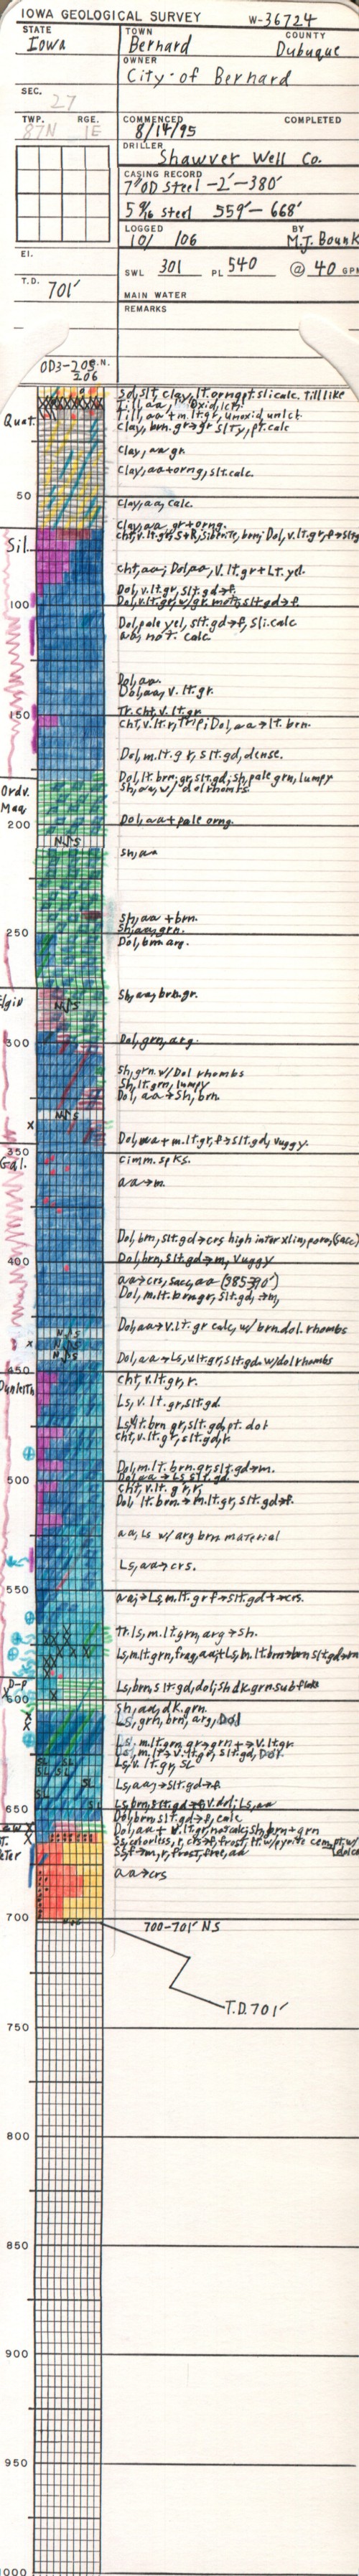 IOWA GEOLOGICAL SURVEY W-36724
STATE TOWN COUNTY
Iowa Bernard Dubuque
OWNER
City of Bernard
SEC. 27
TWP. RGE. COMMENCED COMPLETED
87N 1E 8/14/95
DRILLER
Shawver Well Co.
CASING RECORD
7"OD Steel -2'-380'
5 9/16 steel 559'-668'
LOGGED BY
10/ /06 M.J. Bounk
El.
SWL 301 PL 540 @ 40 GPM
T.D. 701'
MAIN WATER
REMARKS
OD3-205
206
Sd, slt, clay, lt. orng, pt. sli calc. till like
Till, aa, Oxid, lch.
Till, aa + m. lt. gr, unoxid, unlch.
Quat. Clay, brn. gr→gr slty, pt. calc
Clay, aa gr.
Clay, aa + orng, slt. calc.
50
Clay, aa, calc.
Clay, aa, gr + orng.
Sil. cht, v. lt. gr, S+R, Siderite, brn; Dol, v. lt. gr, f→sltg
cht, aa; Dol, aa, v. lt. gr + Lt. yel.
Dol, v. lt. gr, slt. gd→f.
100 Dol, v. lt. gr, w/ gr. mott, slt. gd→f.
Dol, pale yel, slt. gd→f, sli. calc
aa, not calc.
Dol, aa.
Dol, aa, v. lt. gr.
150 Tr. cht, v. lt. gr.
cht, v. lt. r, Trip; Dol, aa → lt. brn.
Dol, m. lt. gr, slt. gd, dense.
Dol, lt. brn. gr, slt. gd, sh, pale grn, lumpy
Ordv. Sh, aa, w/ dol rhombs
Maq.
200 Dol, aa + pale orng.
NS
Sh, aa
Sh, aa + brn.
Sh, aa, grn.
250 Dol, brn arg.
Elgin Sh, aa, brn. gr.
NS
300 Dol, grn, arg.
Sh, grn. w/ Dol rhombs
Sh, lt. grn, lumpy
Dol, aa → Sh, brn.
NS
X
Dol, aa + m. lt. gr, f→slt. gd, vuggy.
350
Gal. cinn. spks.
aa→m.
Dol, brn, slt. gd→crs high inter xlin, poro, (sacc)
400 Dol, brn, slt. gd→m, vuggy
aa→crs, sacc, aa (385-390')
Dol, m. lt. brn gr, slt. gd, →m,
Dol, aa→v. lt. gr calc, w/ brn. dol. rhombs
NS
X NS
NS
450 Dol, aa→Ls, v. lt. gr, slt. gd. w/ dol rhombs
Dunleith cht, v. lt. gr, r.
Ls, v. lt. gr, slt. gd.
Ls, lt. brn gr, slt. gd, pt. dol
cht, v. lt. gr, slt. gd, r
500 Dol, m. lt. brn. gr, slt. gd→m.
Dol, aa → Ls slt. gd.
cht, v. lt. gr, r,
Dol, lt. brn.→m. lt. gr, slt. gd→f.
aa, Ls w/ arg brn material
Ls, aa→crs.
550
aa;→Ls, m. lt. gr f→slt. gd→crs.
Th. ls, m. lt. grn, arg→sh.
D-P
600 Ls, brn, slt. gd, dol; Sh dk. grn. sub
Sh, aa, dk. grn.
Ls, grn, brn, arg, Dol
Ls, v. lt. gr, SL
SL SL
SL SL
SL
SL
Ls, aa,→slt. gd→f.
650 Ls, brn, slt. gd→f, v. dol; Ls, aa
Dol, brn, slt. gd→f, calc
Dol, aa + v. lt. gr, not calc, Sh, brn + grn
aa→crs
700
NS 700-701' NS
T.D. 701'
750
800
850
900
950
1000